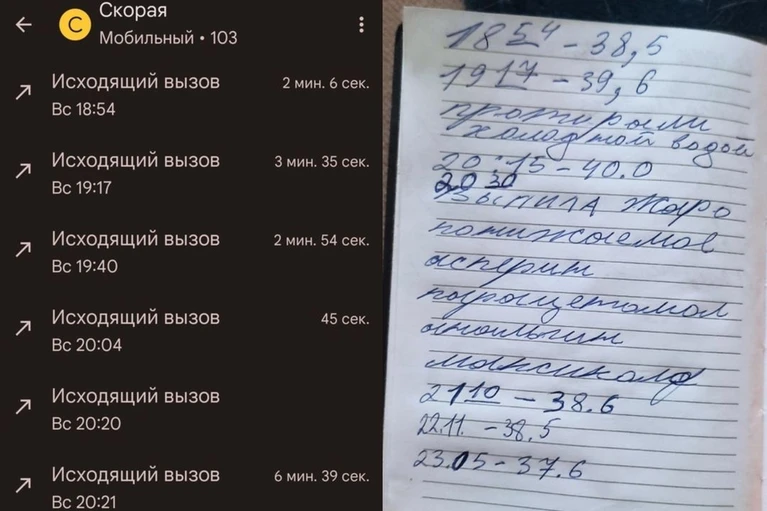 Скорая
С
Мобильный • 103
Исходящий вызов 2 мин. 6 сек.
Вс 18:54
Исходящий вызов 3 мин. 35 сек.
Вс 19:17
Исходящий вызов 2 мин. 54 сек.
Вс 19:40
Исходящий вызов 45 сек.
Вс 20:04
Исходящий вызов
Вс 20:20
Исходящий вызов 6 мин. 39 сек.
Вс 20:21
18 54 - 38,5
19 17 - 39,6
протирали
холодной водой
20:15 - 40.0
20 30
выпила жаро
понижаемое
асперин
парацетамол
анальгин
максиколд
21 10 - 38.6
22.11. - 38,5
23.05 - 37.6